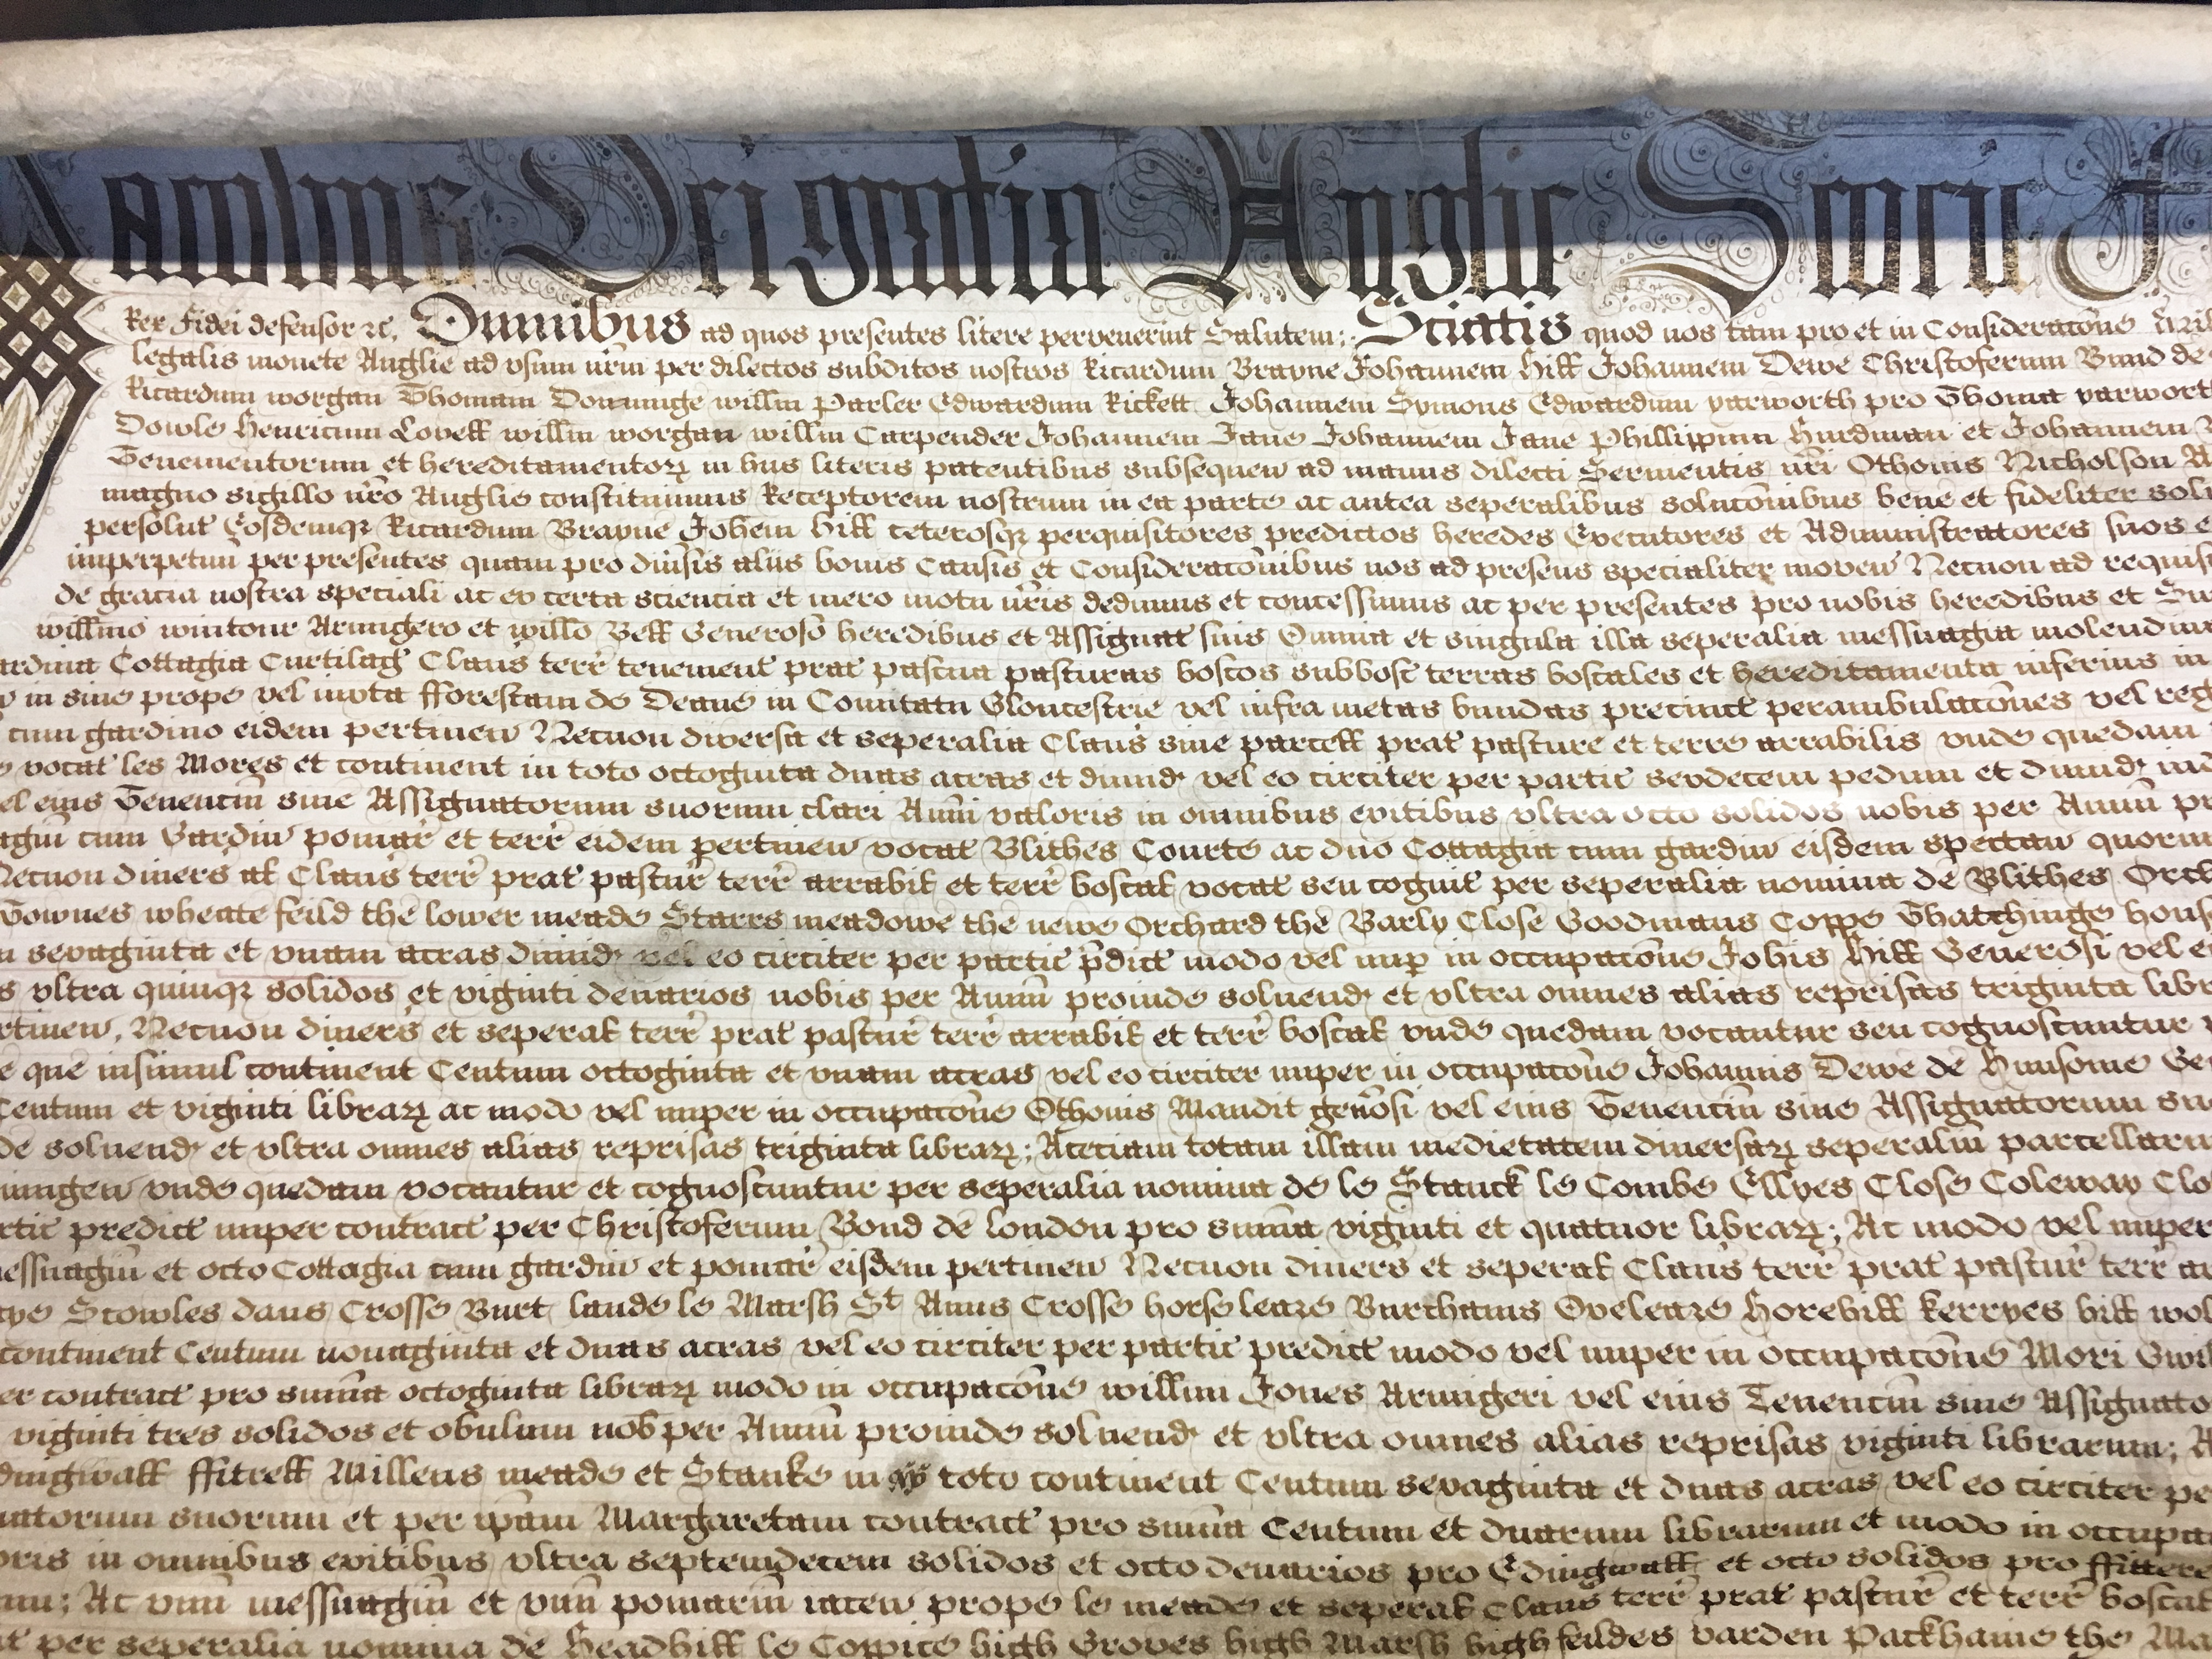 Dei gratia Anglie Scocie
Rex Fidei defensor &c. Omnibus ad quos presentes litere pervenerint Salutem; Sciatis quod nos tam pro et in Consideratōne
legalis monete Anglie ad vsum nr̃m per dilectos subditos nostros Ricardum Brayne Johannem Hill Johannem Dewe Christoferum Bund de
Ricardum worgan Thomam Donninge willm̃ Parler Edwardum Rickett Johannem Symons Edwardum yarworth pro Thoma yarwort
Dowle Henricum Lovell willm̃ worgan willm̃ Carpender Johannem Jane Johannem Jane Phillippum Hurdman et Johannem
Tenementorum et hereditamentoꝝ in hus literis patentibus subsequen̄ ad manus dilecti Servientis nr̃i Othonis Nicholson
magno sigillo nr̃o Anglie constituimus Receptorem nostrum in ea parte ac antea seperalibus solutōnibus bene et fideliter solu
persolut̄ Eosdemqꝫ Ricardum Brayne Joh̃em Hill ceterosqꝫ perquisitores predictos heredes Executores et Administratores suos
imperpetuū per presentes quam pro diũsis aliis bonis Causis et Consideratōnibus nos ad presens specialiter moven̄ Necnon ad requis
de gracia nostra speciali ac ex certa sciencia et mero motu nr̃is dedimus et concessimus ac per presentes pro nobis heredibus et Su
willm̃o wintour Armigero et willo Bell Generoso heredibus et Assignat̄ suis Omnia et singula illa seperalia messuagia molendina
ardina Cottagia Curtilag̃ Claus̃ terr̃ tenement̄ prat̄ pascua pasturas boscos subbosc̄ terras boscales et hereditamenta inferius in
in sive prope vel iuxta fforestam de Deane in Comitatu Gloucestrie vel infra metas bundas precinct̄ perambulatōnes vel reg
cum gardino eidem pertinen̄ Necnon diversa et seperalia Claus̃ sive parcell prat̄ pasture et terre arrabilis vnde quedam
vocat̄ les Mores et continent in toto octoginta duas acras et dimid̛ vel eo circiter per partic̃ sexdecem pedum et dimid̛
el eius Tenenciũ sive Assignatorum suorum clari Anni valoris in omnibus exitibus vltra octo solidos nobis per Annũ
agiũ cum Gardin̄ pomar̃ et terr̃ eidem pertinen̄ vocat̄ Blithes Courte ac duo Cottagia cum gardin̄ eisdem spectan̄ quorum
Necnon divers̃ al̃ Claus̃ terr̃ prat̄ pastur̃ terr̃ arrabil̃ et terr̃ boscal̃ vocat̄ seu cognit̄ per seperalia nomina de Blithes Orch
Townes wheate feild the lower meade Starrs meadowe the newe Orchard the Barly Close Goodmans Coppe Thatchinge hous
sexaginta et vnam acras dimid̛ vel eo circiter per partic̃ p̃dict̄ modo vel nup̱ in occupatōne Joh̃is Hill Generosi vel
vltra quinqꝫ solidos et viginti denarios nobis per Annũ proinde soluend̛ et vltra omnes alias reprisas triginta libr
rtinen̄, Necnon divers̃ et seperal̃ terr̃ prat̄ pastur̃ terr̃ arrabil̃ et terr̃ boscal̃ vnde quedam vocantur seu cognoscuntur
que insimul continent Centum octoginta et vnam acras vel eo circiter nuper in occupatōne Johannis Dewe de Hunsome Ge
Centum et viginti libraꝝ ac modo vel nuper in occupatōne Othonis Maudit gen̄osi vel eius Tenenciũ sive Assignatorum su
de soluend̛ et vltra omnes alias reprisas triginta libraꝝ; Aceciam totam illam medietatem diversaꝝ seperaliũ parcellaru
vnde quedam vocantur et cognoscuntur per seperalia nomina de le Stanck le Combe Ellyes Close Coleway Clo
rtic̃ predict̄ nuper contract̄ per Christoferum Bond de London pro sum̃a viginti et quatuor libraꝝ; Ac modo vel nuper
essuagiũ et octo Cottagia cum gardin̄ et pomar̃ eisdem pertinen̄ Necnon divers̃ et seperal̃ Claus̃ terr̃ prat̄ pastur̃ terr̃ ar
Scowles dans Crosse Burt lande le Marsh St Anns Crosse horse leaze Burchams Oveleaze Horehill Kerryes hill wol
continent Centum nonaginta et duas acras vel eo circiter per partic̃ predict̄ modo vel nuper in occupatōne Mori Gwil
er contract̄ pro sum̃a octoginta libraꝝ modo in occupatōne willm̃i Jones Armigeri vel eius Tenenciũ sive Assignato
viginti tres solidos et obulum nob̃ per Annũ proinde soluend̛ et vltra omnes alias reprisas viginti librarum;
dingwall ffitrell Millens meade et Stanke in toto continent Centum sexaginta et duas acras vel eo circiter pe
natorum suorum et per ip̃am Margaretam contract̄ pro sum̃a Centum et duarum librarum et modo in occupa
oris in omnibus exitibus vltra septemdecem solidos et octo denarios pro Edingwall et octo solidos pro ffittere
um; Ac vnũ messuagiũ et vnũ pomariũ iacen̄ prope le meade et seperal̃ Claus̃ terr̃ prat̄ pastur̃ et terr̃ boscal
per seperalia nomina de Headhill le Coppice high Groves high Marsh high feildes varden Packhame the Ma